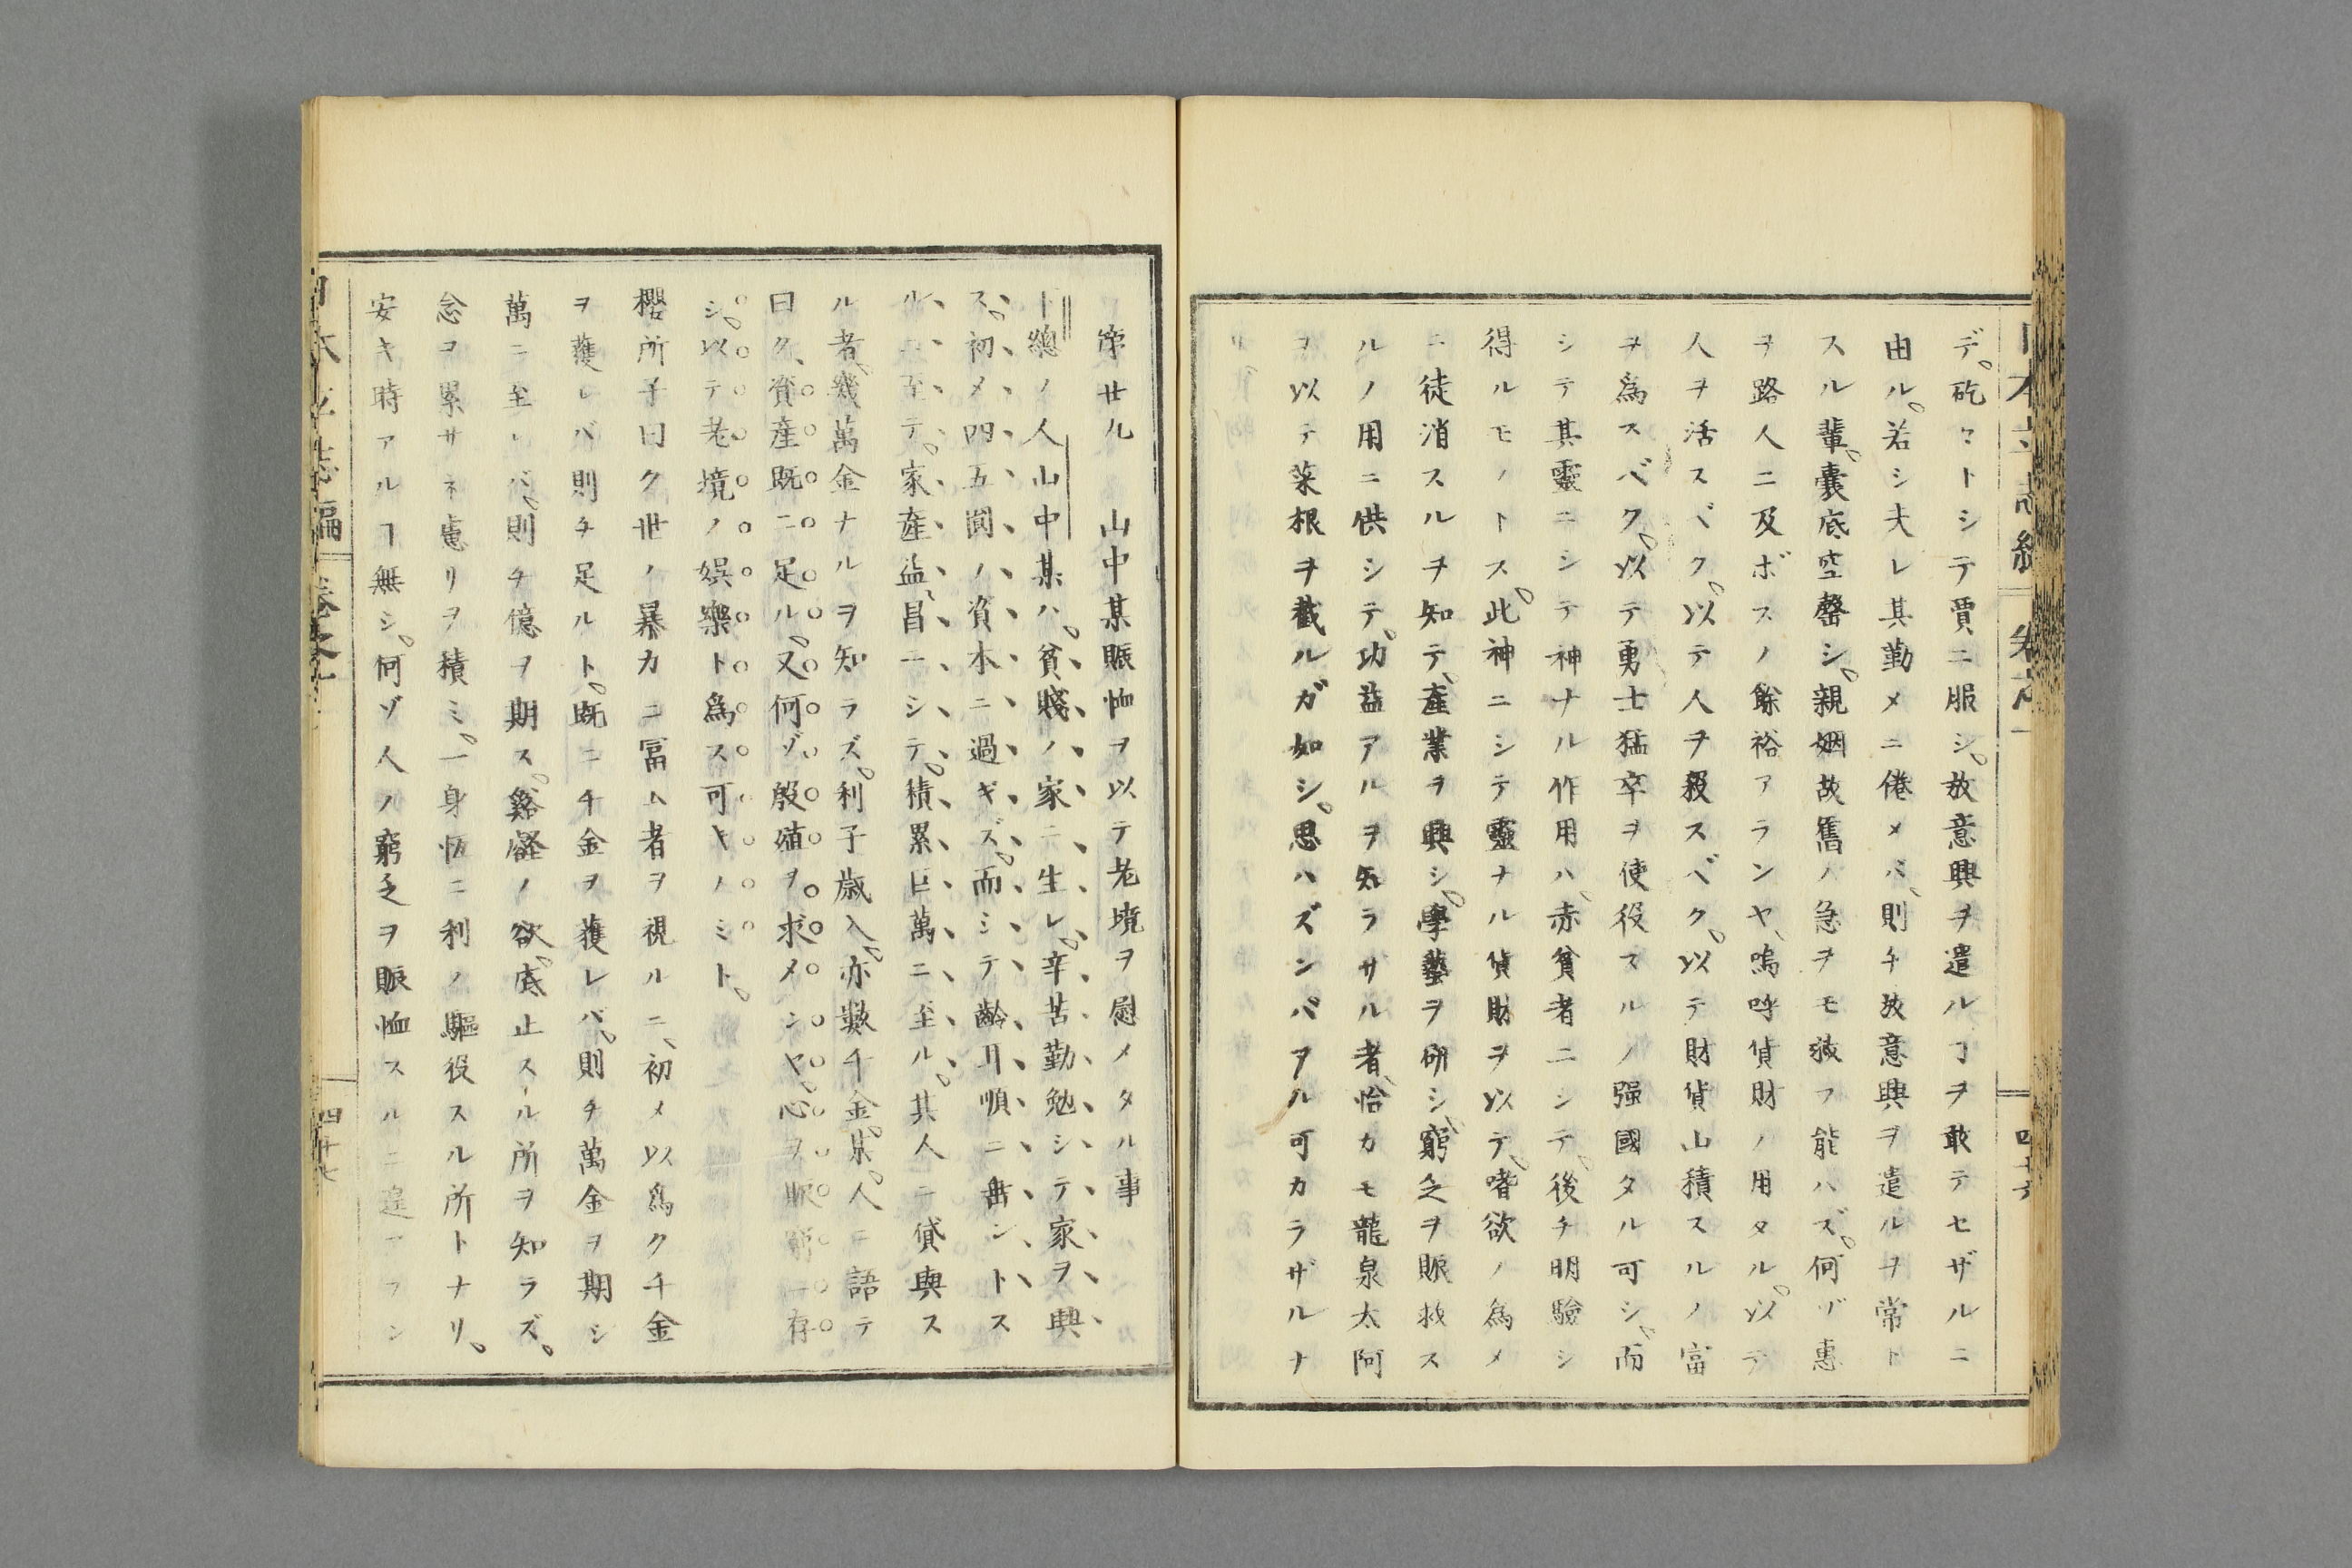 デ。矻々トシテ賈ニ服シ。放意興ヲ遣ルヿヲ敢テセザルニ
由ル。若シ夫レ其勤メニ倦メバ、則チ放意興ヲ遣ルヲ常ト
スル輩。囊底空罄シ。親姻故舊ノ急ヲモ救フ能ハズ。何ゾ惠
ヲ路人ニ及ボスノ餘裕アランヤ、嗚呼貨財ノ用タル。以テ
人ヲ活スベク。以テ人ヲ殺スベク。以テ財貨山積スルノ富
ヲ為スベク。以テ勇士猛卒ヲ使役スルノ强國タル可シ。而
シテ其靈ニシテ神ナル作用ハ、赤貧者ニシテ。後チ明驗シ
得ルモノトス。此神ニシテ靈ナル貨財ヲ以テ。嗜欲ノ為メ
ニ徒消スルヲ知テ、產業ヲ興シ。學藝ヲ研シ、窮乏ヲ賑救ス
ルノ用ニ供シテ、功益アルヲ知ラサル者、恰カモ龍泉太阿
ヲ以テ菜根ヲ截ルガ如シ。思ハズンバアル可カラザルナ
リ。
日本立志編 卷之一 四十六
第廿九 山中某賑恤ヲ以テ老境ヲ慰メタル事
下總ノ人山中某ハ。貧賤ノ家ニ生レ。辛苦勤勉シテ家ヲ興
ス。初メ四五圓ノ資本ニ過ギズ。而シテ齡耳順ニ垂ントス
ルニ至テ。家產益〻昌ニシテ。積累巨萬ニ至ル。其人ニ貸與ス
ル者、幾萬金ナルヲ知ラズ。利子歲入。亦數千金。某。人ニ語テ
曰ク、資產既ニ足ル。又何ゾ殷殖ヲ求メンヤ。心ヲ賑
シ。以テ老境ノ娯樂ト為ス可キノミト。
櫻所子曰ク世ノ暴カニ冨ム者ヲ視ルニ、初メ以為ク千金
ヲ獲レバ則チ足ルト。既ニ千金ヲ獲レバ、則チ萬金ヲ期シ
萬ニ至レバ。則チ億ヲ期ス。谿壑ノ欲。底止スル所ヲ知ラズ。
念ヲ累サネ慮リヲ積ミ。一身恆ニ利ノ驅役スル所トナリ。
安キ時アルヿ無シ。何ゾ人ノ窮乏ヲ賑恤スルニ遑アラン
日本立志編 卷之一 四十七